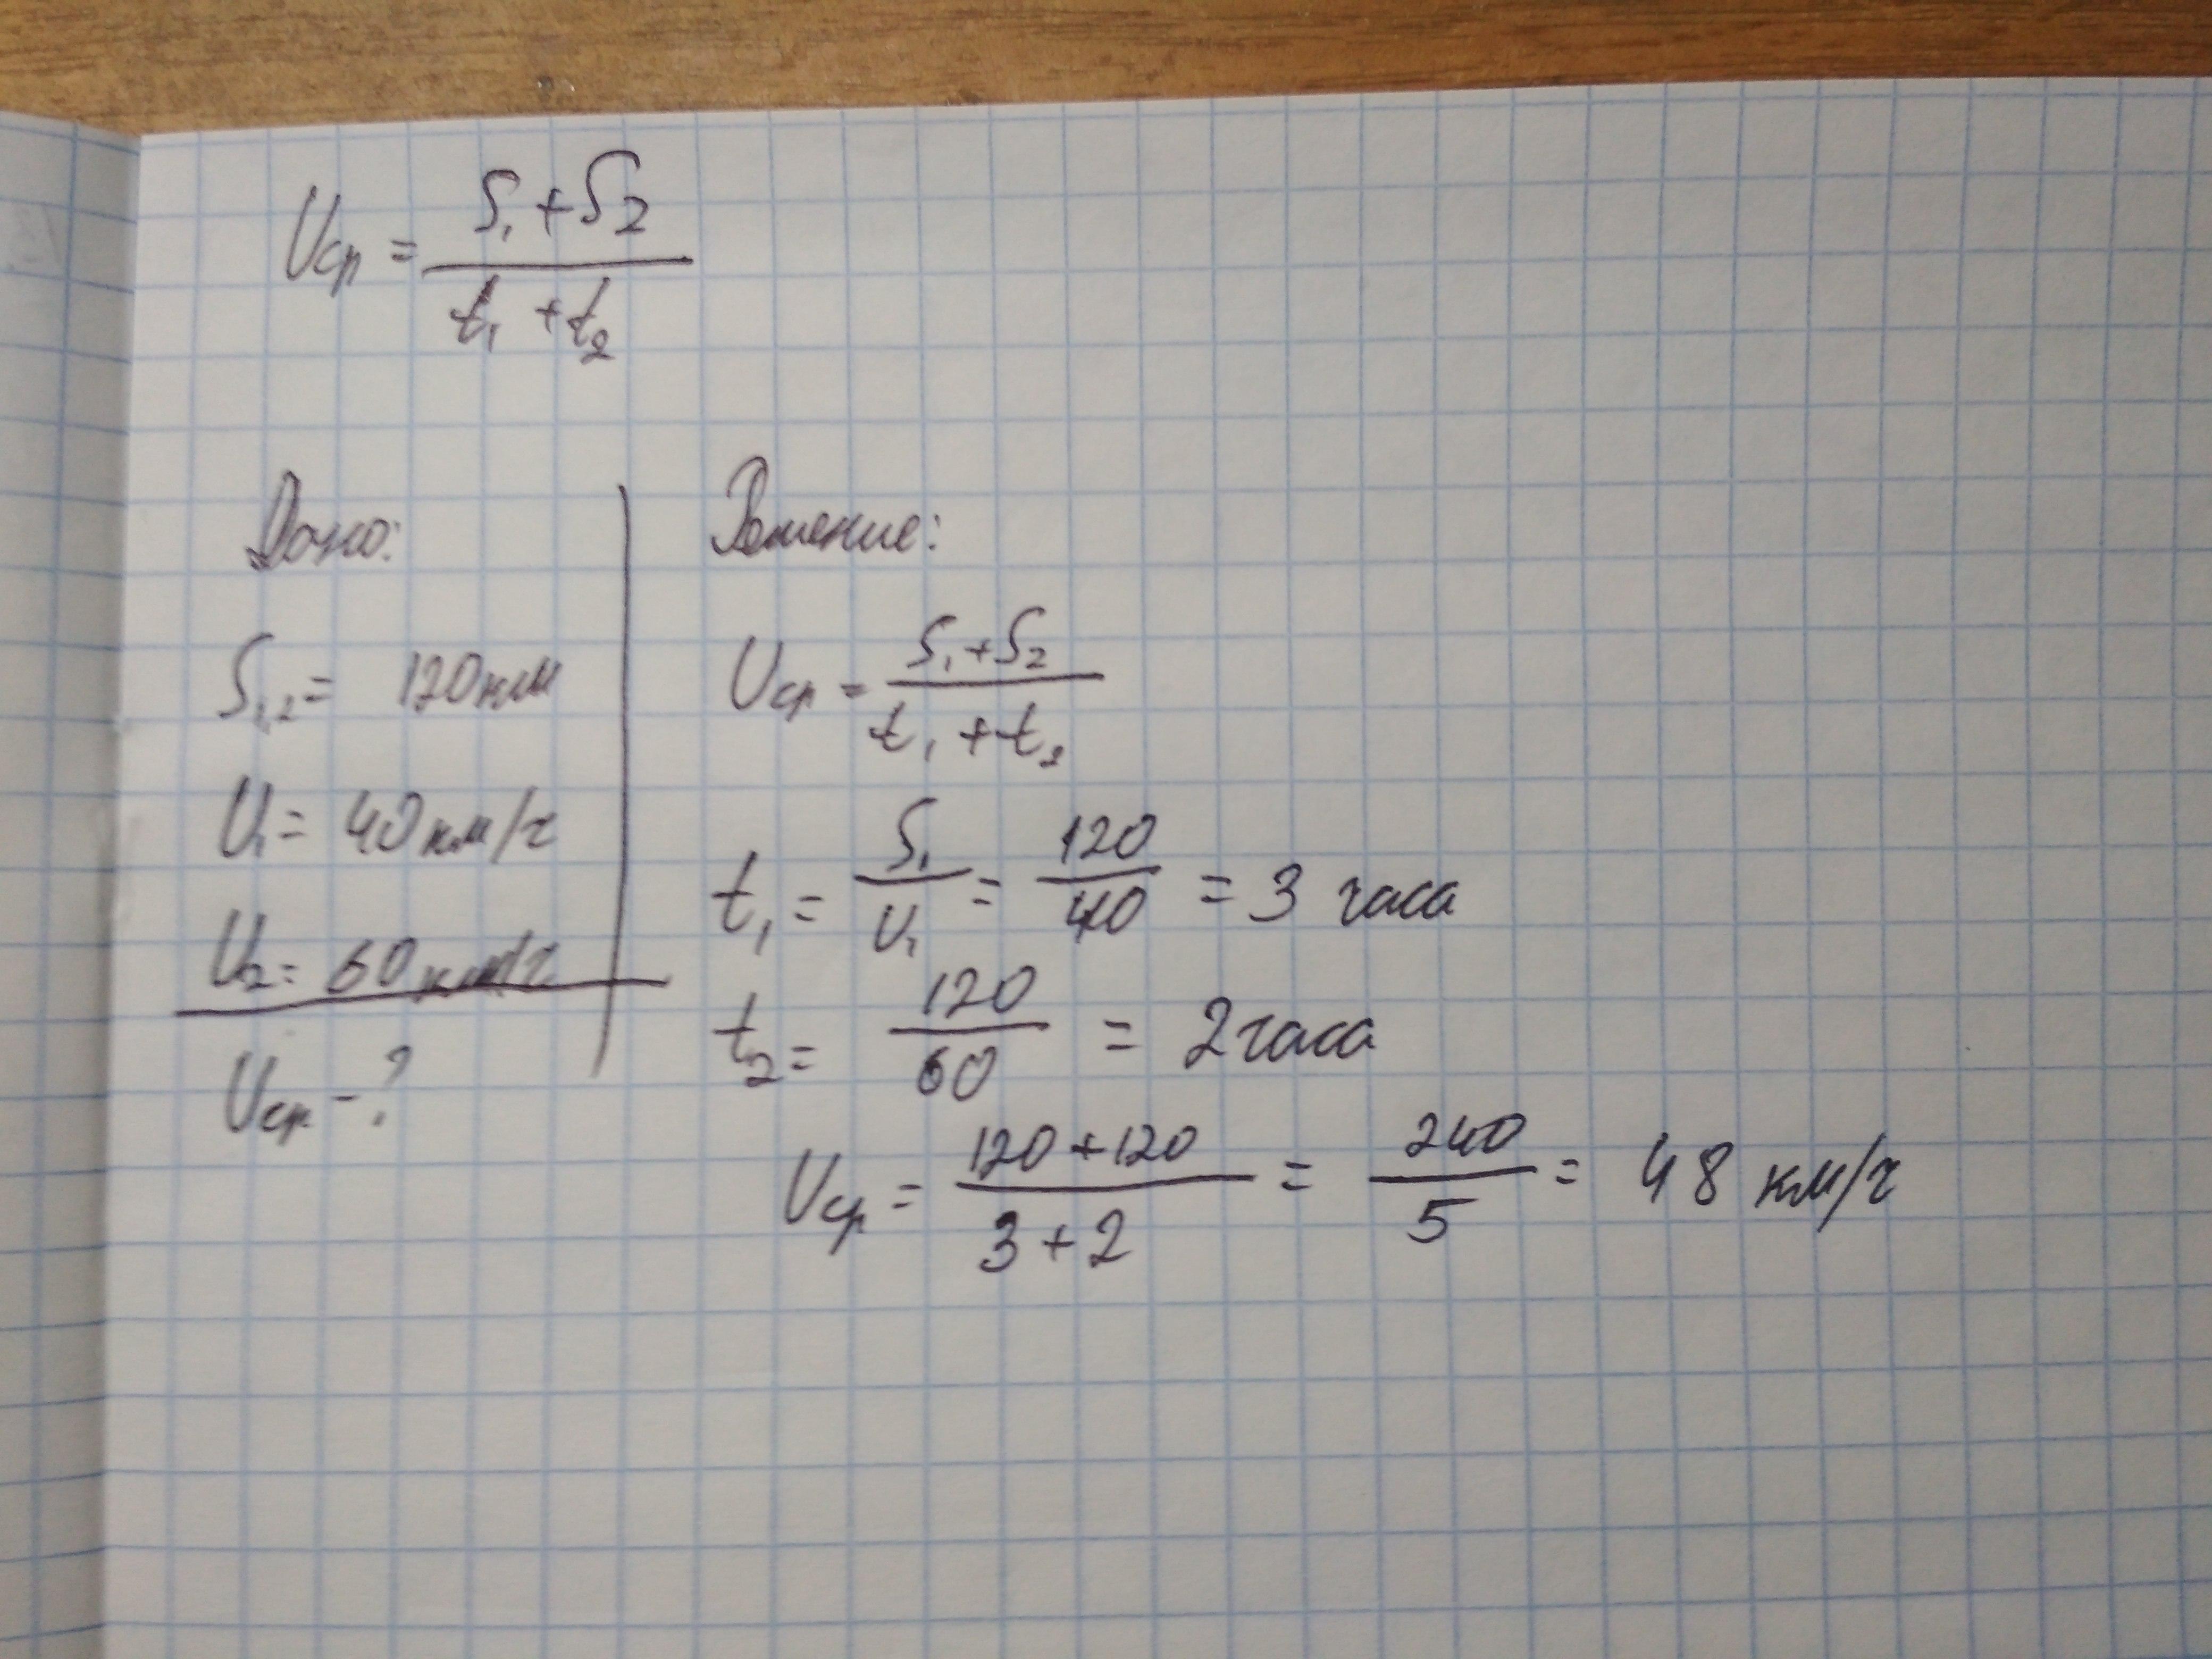 Uср = S₁ + S₂ / t₁ + t₂
Дано:
S₁,₂ = 120 км
U₁ = 40 км/ч
U₂ = 60 км/ч
Uср - ?
Решение:
Uср = S₁ + S₂ / t₁ + t₂
t₁ = S₁ / U₁ = 120 / 40 = 3 часа
t₂ = 120 / 60 = 2 часа
Uср = 120 + 120 / 3 + 2 = 240 / 5 = 48 км/ч